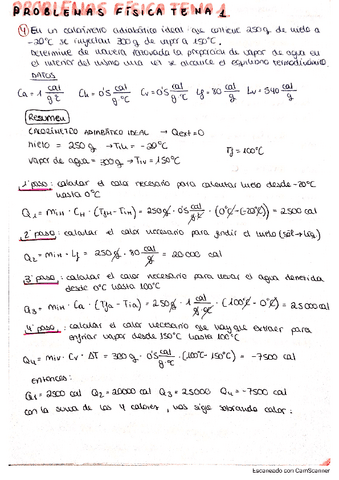 PROBLEMAS FÍSICA TEMA 1
④ En un calorímetro adiabático ideal que contiene 250g de hielo a
-20°C se inyectan 300g de vapor a 150°C.
Determine de manera razonada la proporción de vapor de agua en
el interior del mismo una vez se alcance el equilibrio termodinámico.
DATOS
Ca = 1 cal/g°C Ch = 0'5 cal/g°C Cv = 0'5 cal/g°C Lf = 80 cal/g Lv = 540 cal/g
Resumen
CALORÍMETRO ADIABÁTICO IDEAL → Qext = 0
hielo = 250 g → TiH = -20°C
Tf = 100°C
vapor de agua = 300g → Tiv = 150°C
1º paso: calcular el calor necesario para calentar hielo desde -20°C
hasta 0°C
Q1 = miH · CH · (TfH - TiH) = 250g · 0'5 cal/g°C · (0°C - (-20°C)) = 2500 cal
2º paso: calcular el calor necesario para fundir el hielo (sól → líq)
Q2 = miH · Lf = 250g · 80 cal/g = 20000 cal
3º paso: calcular el calor necesario para llevar el agua obtenida
desde 0°C hasta 100°C
Q3 = miH · Ca · (Tfa - Tia) = 250g · 1 cal/g°C · (100°C - 0°C) = 25000 cal
4º paso: calcular el calor necesario que hay que extraer para
enfriar vapor desde 150°C hasta 100°C
Q4 = miv · Cv · ΔT = 300g · 0'5 cal/g°C · (100°C - 150°C) = -7500 cal
entonces:
Q1 = 2500 cal Q2 = 20000 cal Q3 = 25000 Q4 = -7500 cal
con la suma de los 4 calores, nos sigue sobrando calor:
Escaneado con CamScanner